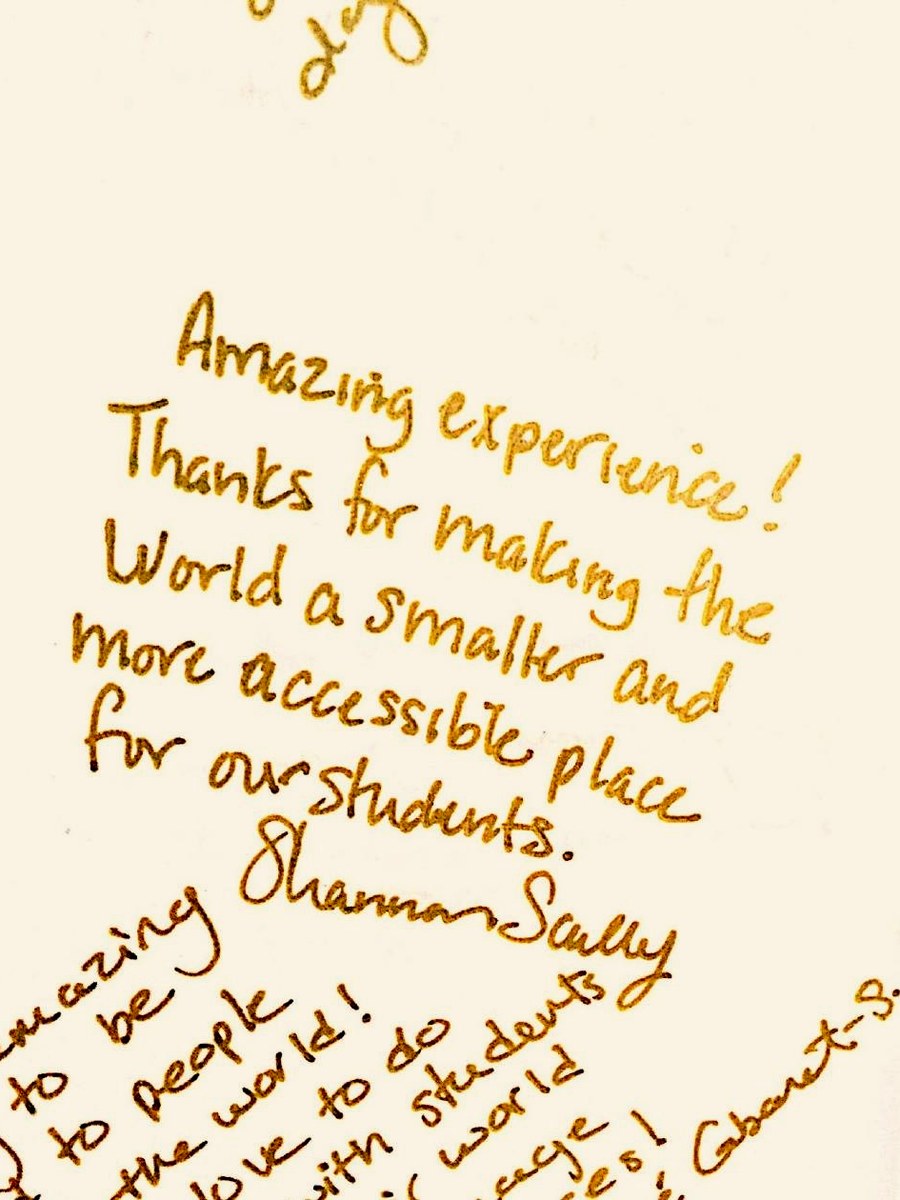 day
Amazing experience!
Thanks for making the
World a smaller and
more accessible place
for our students.
Shannon Scully
amazing
to be
to people
the world!
love to do
with students
world
Cabaret-S.